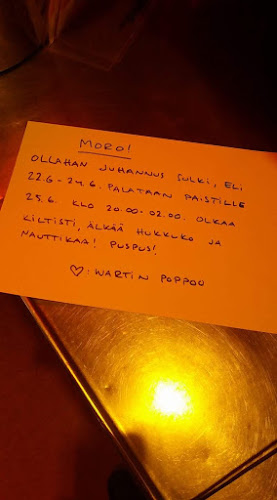 MORO!
OLLAHAN JUHANNUS SULKI, ELI
22.6-24.6. PALATAAN PAISTILLE
25.6. KLO 20.00-02.00. OLKAA
KILTISTI, ÄLKÄÄ HUKKUKO JA
NAUTTIKAA! PUSPUS!
♡: WARTIN POPPOO